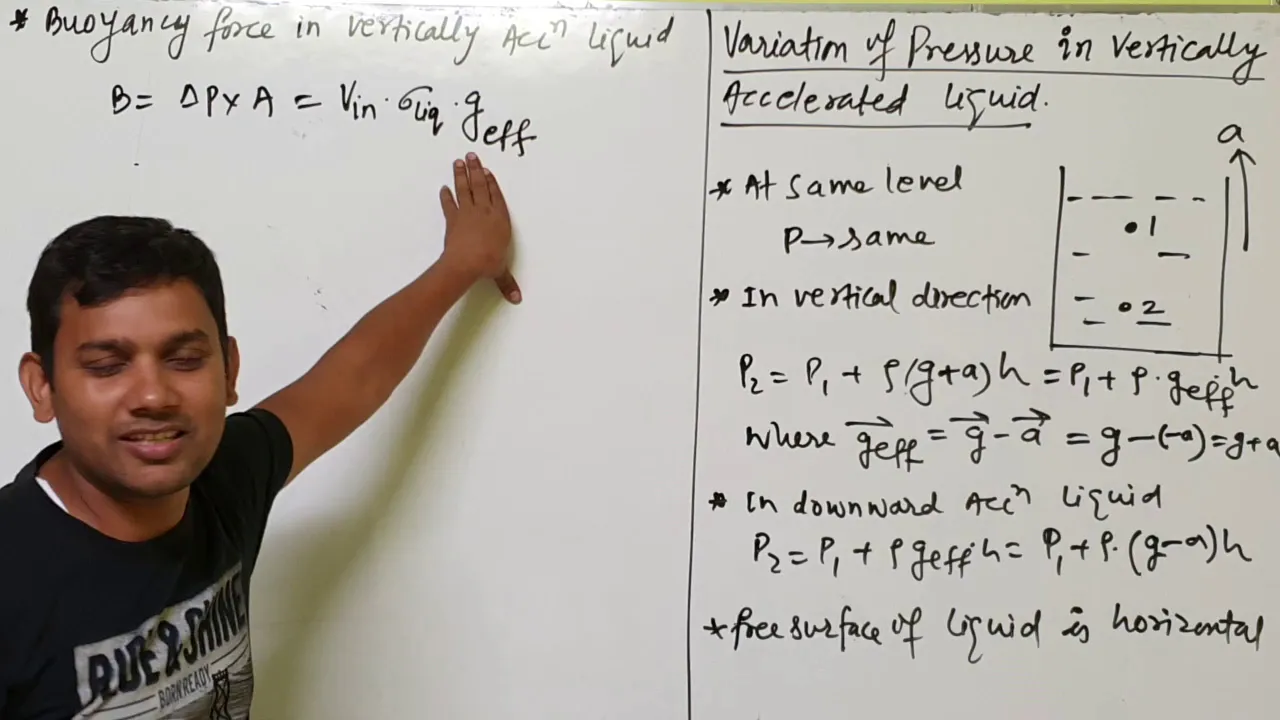 * Buoyancy force in vertically Accⁿ liquid
B = ΔP × A = Vin · σliq · geff
Variation of Pressure in Vertically
Accelerated liquid.
a
* At same level
P → same
1
2
* In vertical direction
P₂ = P₁ + ρ(g+a)h = P₁ + ρ·geff h
where g⃗eff = g⃗ - a⃗ = g - (-a) = g+a
* In downward Accⁿ liquid
P₂ = P₁ + ρ geff·h = P₁ + ρ·(g-a)h
* free surface of liquid is horizontal
RIDE & SHINE
BORN READY